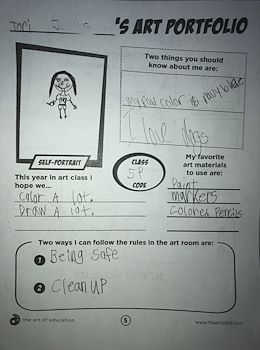 'S ART PORTFOLIO
Two things you should
know about me are:
my fav color is
I love dogs
SELF-PORTRAIT
CLASS
CODE
This year in art class I
hope we...
Color A lot.
Draw A lot.
My favorite
art materials
to use are:
Paint
markers
Colored Pencils
Two ways I can follow the rules in the art room are:
1 Being Safe
2 Clean UP
the art of education
5
www.theartofed.com